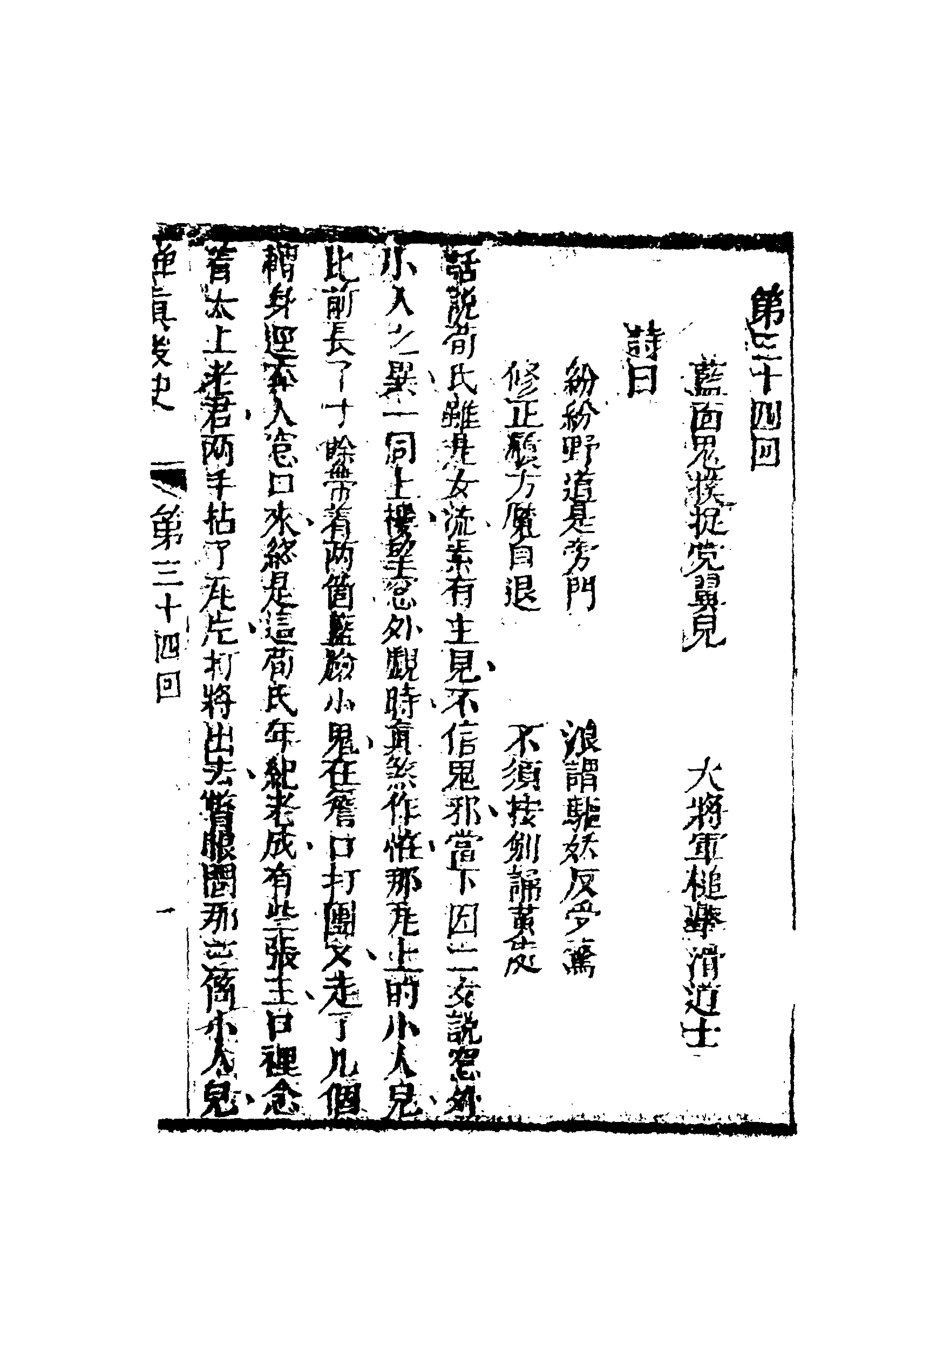 第三十四回
藍面鬼撲捉党翼兒　大將軍槌舉滑道士
詩曰
紛紛野道是旁門　浪謂驅妖反受驚
修正厭方魔自退　不須按劍誦黃庭
話說荀氏雖是女流素有主見不信鬼邪當下因二女說窓外
小人之異一同上樓望窓外覷時眞煞作怪那瓦上的小人兒
比前長了寸餘帶着两箇藍臉小鬼在簷口打團又走了几個
轉身逕奔入窓口來終是這荀氏年紀老成有些張主口裡念
着太上老君两手拈了瓦片打將出去瞥眼間那三個小人兒
禅真後史　第三十四回　一